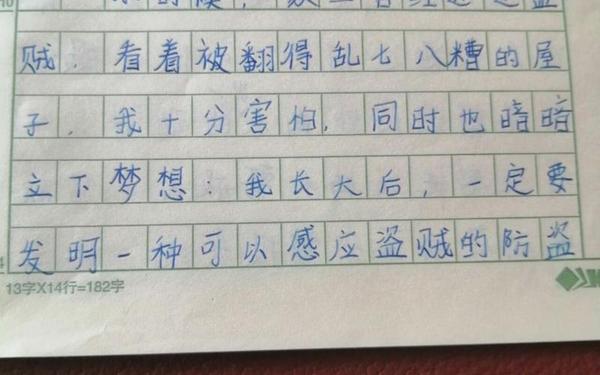 小的时候，
贼．看着被翻得乱七八糟的屋
子．我十分害怕，同时也暗暗
立下梦想：我长大后，一定要
发明一种可以感应盗贼的防盗
13字X14行=182字